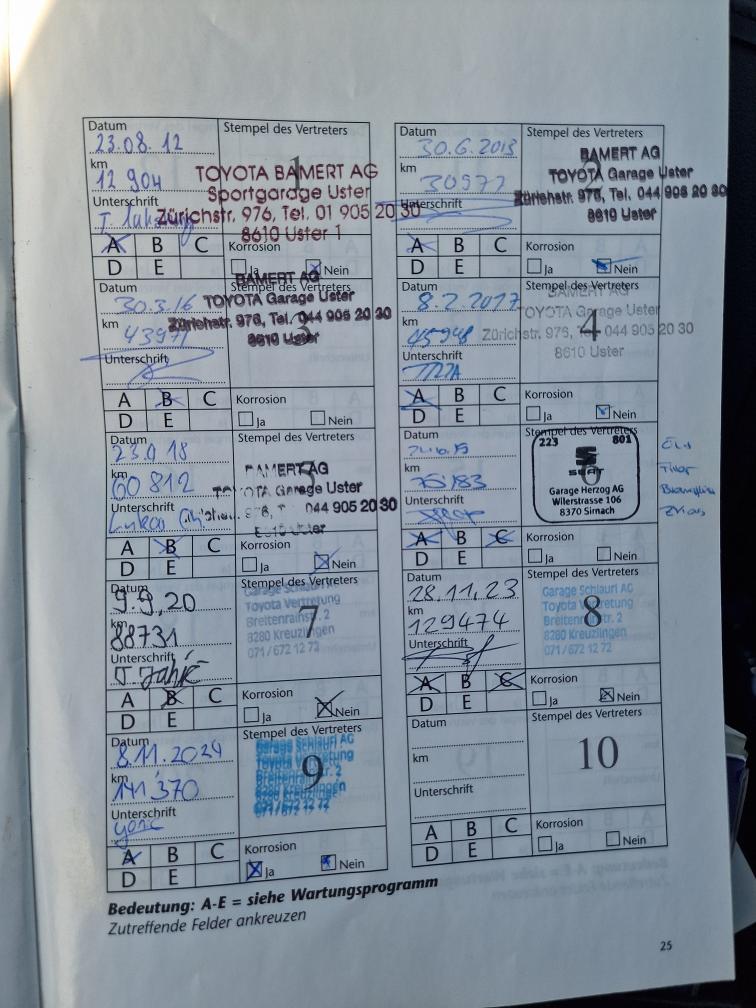 Datum
23.08.12
km
12 904
Unterschrift
Stempel des Vertreters
1
TOYOTA BAMERT AG
Sportgarage Uster
Zürichstr. 976, Tel. 01 905 20 30
8610 Uster 1
A B C
D E
Korrosion
Ja Nein
Datum
30.6.2013
km
30977
Unterschrift
Stempel des Vertreters
BAMERT AG
TOYOTA Garage Uster
Zürichstr. 976, Tel. 044 905 20 30
8610 Uster
A B C
D E
Korrosion
Ja Nein
Datum
30.3.16
km
43971
Unterschrift
Stempel des Vertreters
3
BAMERT AG
TOYOTA Garage Uster
Zürichstr. 976, Tel. 044 905 20 30
8610 Uster
A B C
D E
Korrosion
Ja Nein
Datum
8.2.2017
km
45948
Unterschrift
Stempel des Vertreters
4
BAMERT AG
TOYOTA Garage Uster
Zürichstr. 976, Tel. 044 905 20 30
8610 Uster
A B C
D E
Korrosion
Ja Nein
Datum
23.9.18
km
60 812
Unterschrift
Stempel des Vertreters
BAMERT AG
TOYOTA Garage Uster
044 905 20 30
8610 Uster
A B C
D E
Korrosion
Ja Nein
Datum
km
75183
Unterschrift
Stempel des Vertreters
6
223 801
SEAT
Garage Herzog AG
Wilerstrasse 106
8370 Sirnach
A B C
D E
Korrosion
Ja Nein
Datum
9.9,20
km
88731
Unterschrift
Stempel des Vertreters
7
Garage Schlauri AG
Toyota Vertretung
Breitenrainstr. 2
8280 Kreuzlingen
071/672 12 72
A B C
D E
Korrosion
Ja Nein
Datum
28.11,23
km
129474
Unterschrift
Stempel des Vertreters
8
Garage Schlauri AG
Toyota Vertretung
Breitenrainstr. 2
8280 Kreuzlingen
071/672 12 72
A B C
D E
Korrosion
Ja Nein
Datum
8.11.2024
km
141,370
Unterschrift
Stempel des Vertreters
9
Garage Schlauri AG
Toyota Vertretung
Breitenrainstr. 2
8280 Kreuzlingen
071/672 12 72
A B C
D E
Korrosion
Ja Nein
Datum
km
Unterschrift
Stempel des Vertreters
10
A B C
D E
Korrosion
Ja Nein
Bedeutung: A-E = siehe Wartungsprogramm
Zutreffende Felder ankreuzen
25